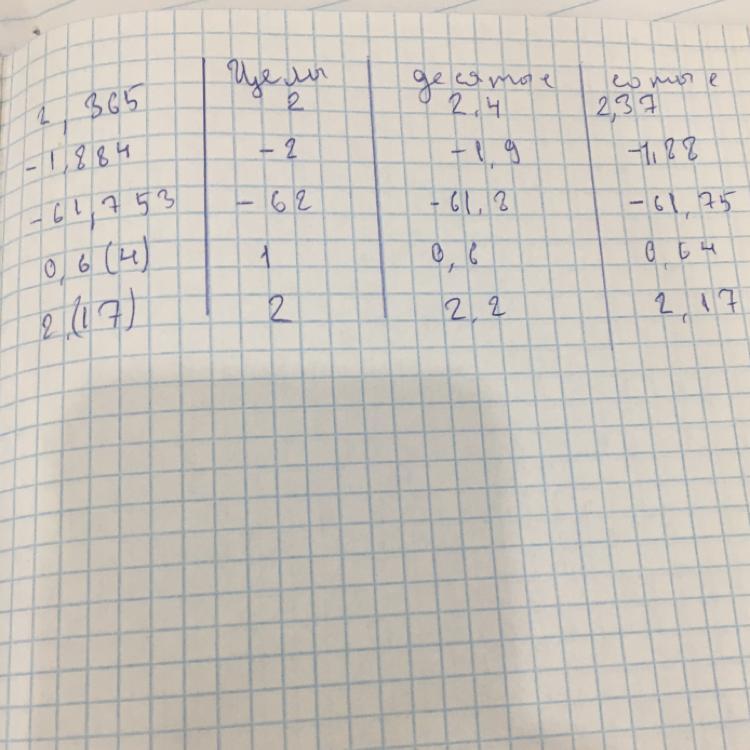 Целы десятые сотые
2,365 2 2,4 2,37
-1,884 -2 -1,9 -1,88
-61,753 -62 -61,8 -61,75
0,6(4) 1 0,6 0,64
2,(17) 2 2,2 2,17